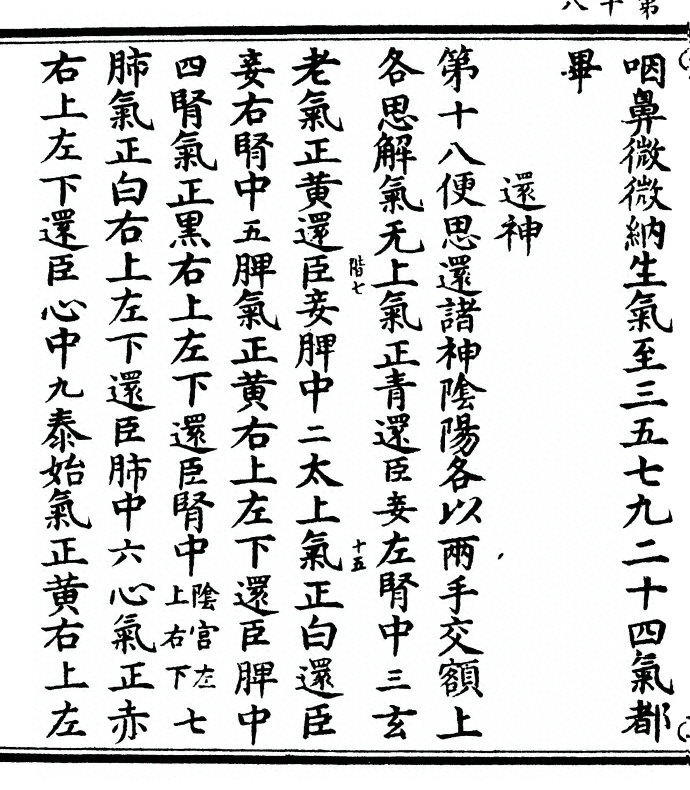 咽鼻微微納生氣至三五七九二十四氣都
畢
還神
第十八便思還諸神陰陽各以兩手交額上
各思解氣无上氣正青還臣妾左腎中三玄
老氣正黃還臣妾脾中二太上氣正白還臣
階七
十五
妾右腎中五脾氣正黃右上左下還臣脾中
四腎氣正黑右上左下還臣腎中陰宮左上右下七
肺氣正白右上左下還臣肺中六心氣正赤
右上左下還臣心中九泰始氣正黃右上左